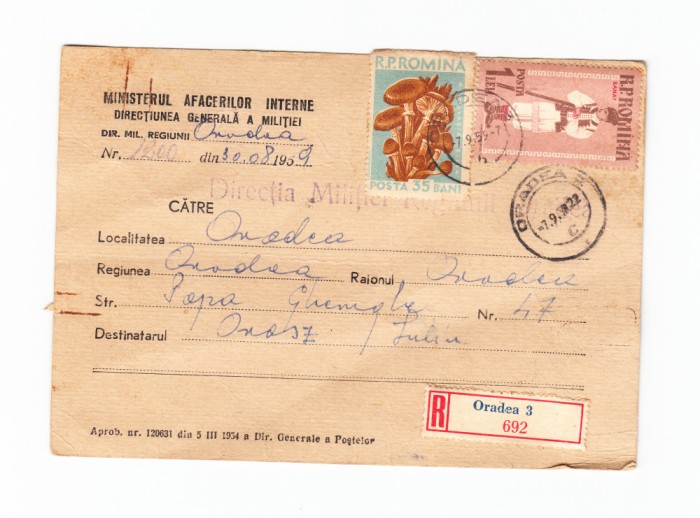 MINISTERUL AFACERILOR INTERNE
DIRECȚIUNEA GENERALĂ A MILIȚIEI
DIR. MIL. REGIUNII Oradea
Nr. 1200 din 30.08 1959
R.P.ROMINA
POSTA 35 BANI
R.P.ROMINA
BANAT
POSTA 1 LEU
-7.9.59-7
ORADEA
-7.9. 22
C
Direcția Miliției
CĂTRE
Localitatea Oradea
Regiunea Oradea Raionul Oradea
Str. Popa Gheorghe Nr. 47
Destinatarul Orosz Iuliu
R Oradea 3
692
Aprob. nr. 120631 din 5 III 1954 a Dir. Generale a Poștelor